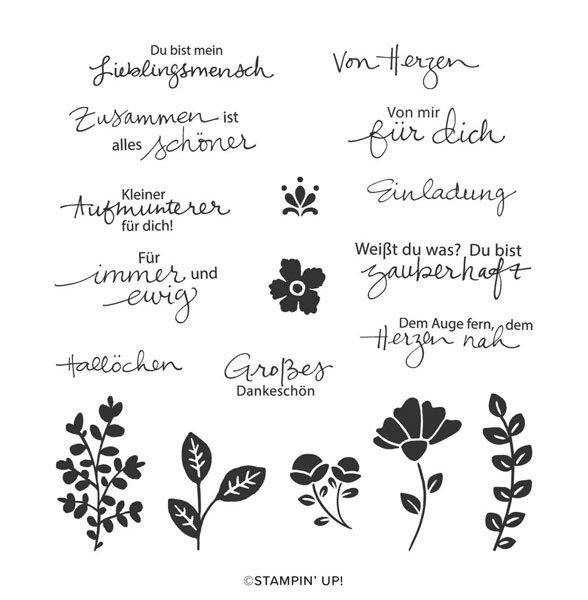 Du bist mein
Lieblingsmensch
Von Herzen
Zusammen ist
alles schöner
Von mir
für dich
Kleiner
Aufmunterer
für dich!
Einladung
Für
immer und
ewig
Weißt du was? Du bist
zauberhaft
Dem Auge fern, dem
Herzen nah
Hallöchen
Großes
Dankeschön
©STAMPIN' UP!